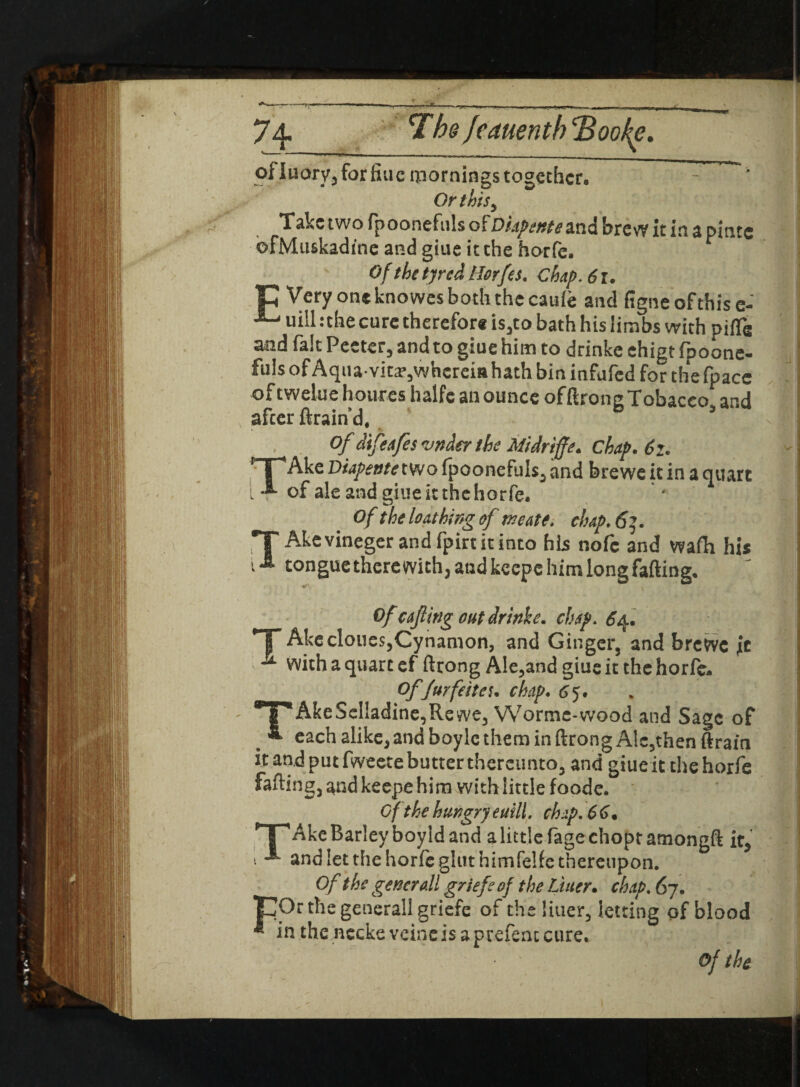 74 The ſeauenth Booke.
of Iuory, for fiue mornings together.
Or this,
Take two ſpoonefuls of Diapente and brew it in a pinte
of Muskadine and giue it the horſe.
Of the tyred Horſes. Chap. 61.
EVery one knowes both the cauſe and ſigne of this e-
uill : the cure therefore is, to bath his limbs with piſſe
and ſalt Peeter, and to giue him to drinke eihgt ſpoone-
fuls of Aqua-vitæ, wherein hath bin infuſed for the ſpace
of twelue houres halfe an ounce of ſtrong Tobacco, and
after ſtrain'd.
Of diſeaſes vnder the Midriffe. Chap. 62.
TAke Diapente two ſpoonefuls, and brewe it in a quart
of ale and giue it the horſe.
Of the loathing of meate. chap. 63.
TAke vineger and ſpirt it into his noſe and waſh his
tongue therewith, and keepe him long faſting.
Of caſting out drinke. chap. 64.
TAke cloues, Cynamon, and Ginger, and brewe it
with a quart of ſtrong Ale, and giue it the horſe.
Of ſurfeites. chap. 65.
TAke Selladine, Rewe, Worme-wood and Sage of
each alike, and boyle them in ſtrong Ale, then ſtrain
it and put ſweete butter thereunto, and giue it the horſe
faſting, and keepe him with little foode.
Of the hungry euill. chap. 66.
TAke Barley boyld and a little ſage chopt amongſt it,
and let the horſe glut himſelfe thereupon.
Of the generall griefe of the Liuer. chap. 67.
FOr the generall griefe of the liuer, letting of blood
in the necke veine is a preſent cure.
Of the